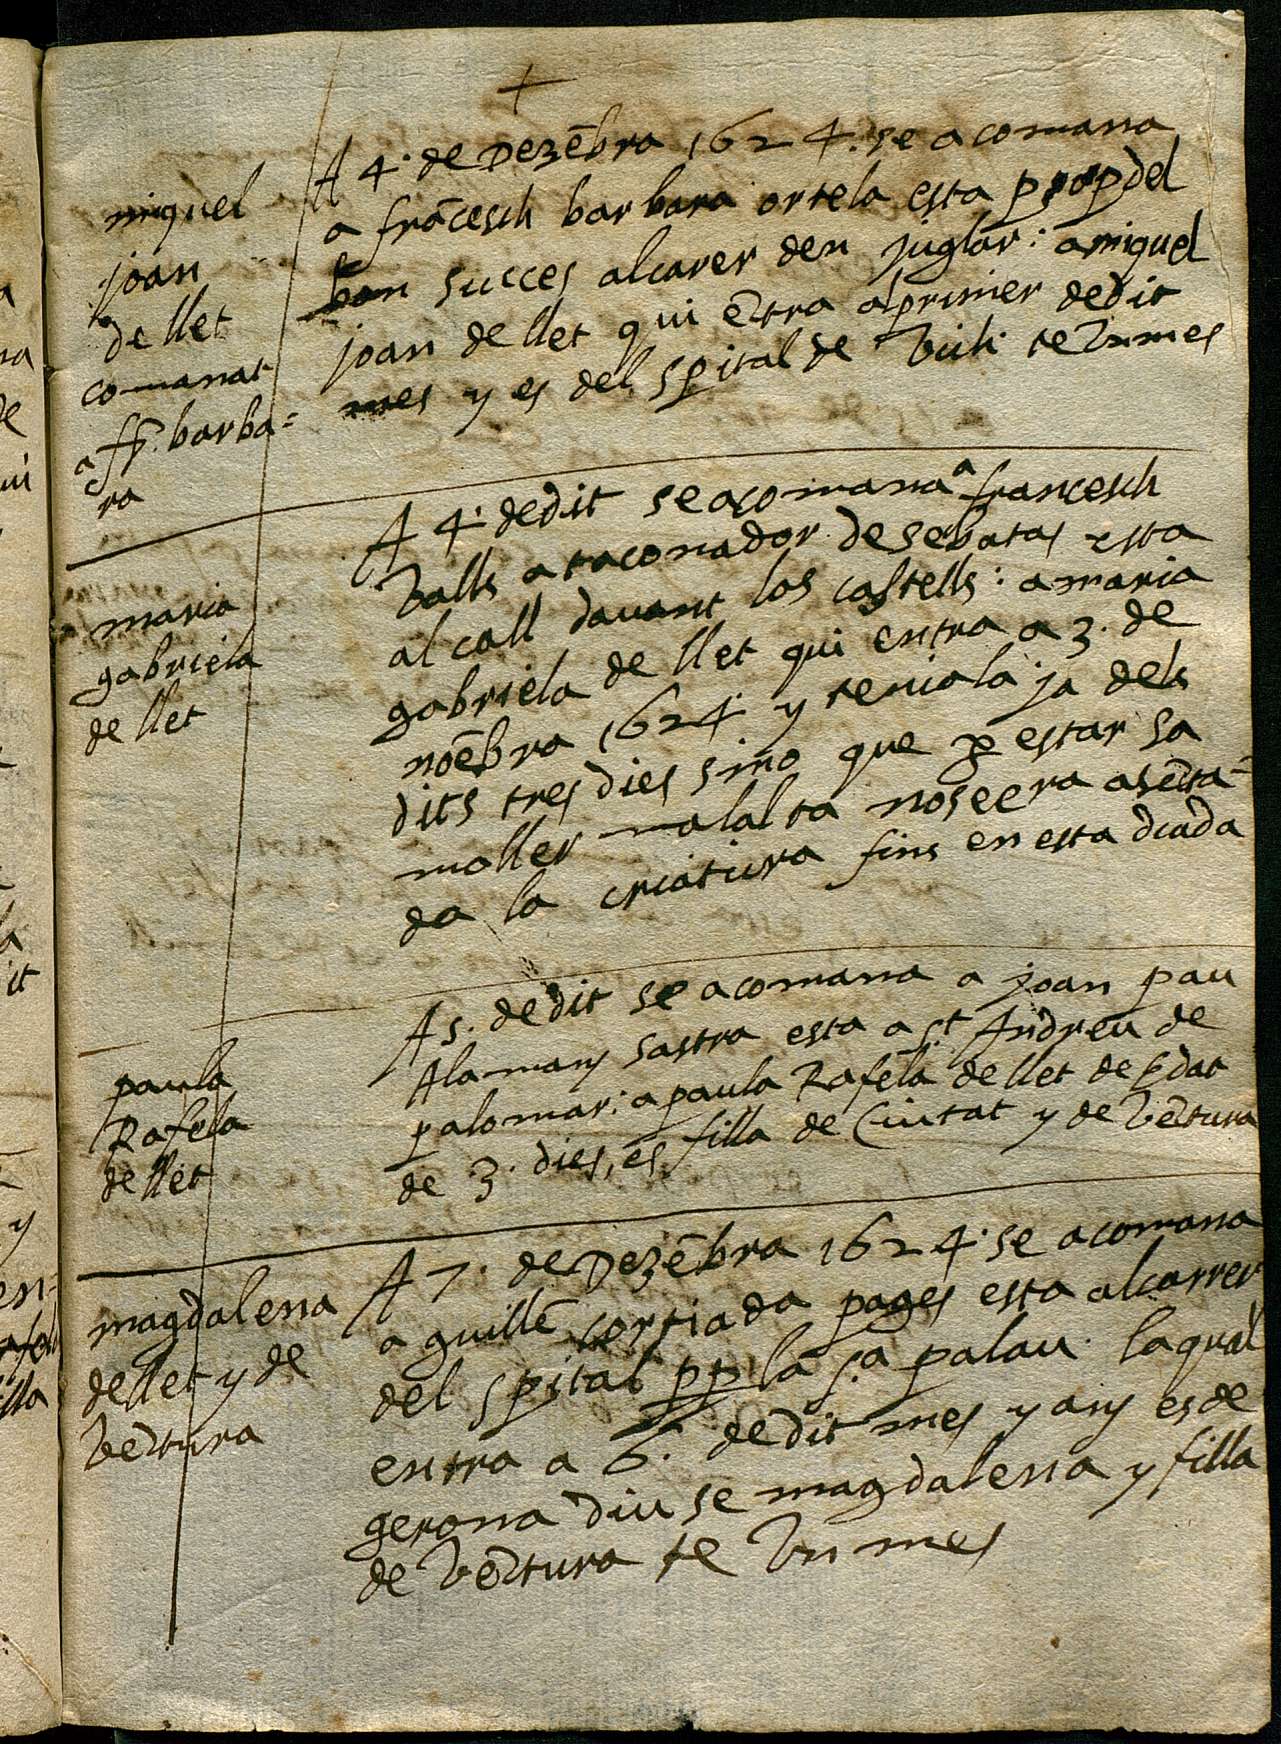 +
miquel
joan
de llet
comanat
a fr. barba=
ra
A 4. de Dezēbra 1624. se acomana
a frācesch barbara ortela esta prop del
bon succes al carer den juglar: a miquel
joan de llet qui ētra al primer de dit
mes y es del spital de Vich te Vn mes
maria
gabriela
de llet
A 4. de dit se acomana a francesch
Valls ataconador de sebatas esta
al call davant los castells: a maria
gabriela de llet qui entra a 3. de
noēbra 1624 y teniala ja dels
dits tres dies sino que p estar sa
moller malalta no see ra asēta=
da la criatura fins en esta diada
paula
Rafela
de llet
A 5. de dit se acomana a joan pau
Alamany sastra esta a St Andreu de
palomar: a paula Rafela de llet de Edat
de 3. dies, es filla de Ciutat y de Vētura
magdalena
de llet y de
Vētura
A 7. de Dezēbra 1624. se acomana
a guillē cortiada pages esta al carrer
del spital pp la Sa. palau. la qual
entra a 6. de dit mes y any es de
gerona diu se magdalena y filla
de Vētura te Vn mes